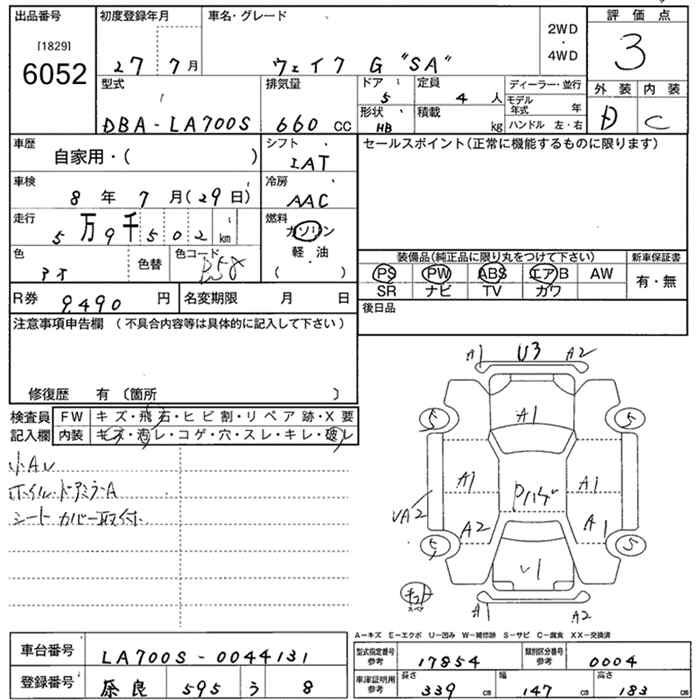 出品番号
[1829]
6052
初度登録年月
27 7月
車名・グレード
ウェイク G "SA"
2WD
・
4WD
評価点
3
外装 内装
D C
型式
DBA-LA700S
排気量
660 CC
ドア
5
定員
4 人
形状
HB
積載
kg
ディーラー・並行
モデル年式 年
ハンドル 左・右
車歴
自家用・( )
シフト
IAT
車検
8年 7月(29日)
冷房
AAC
走行
5万9千502km
燃料
ガソリン
軽・油
( )
色
アオ
色替
色コード
B58
R券
9,490 円
名変期限 月 日
セールスポイント(正常に機能するものに限ります)
装備品(純正品に限り丸をつけて下さい)
PS PW ABS エアB AW
SR ナビ TV カワ
新車保証書
有・無
後日品
注意事項申告欄 (不具合内容等は具体的に記入して下さい)
修復歴 有 〔箇所 〕
検査員記入欄
FW キズ・飛石・ヒビ割・リペア跡・X要
内装 キズ・汚レ・コゲ・穴・スレ・キレ・破レ
小AU
ホイル.ドアミラーA
シートカバー取付
A1 U3 A2
5 A1 5
A1 A1
UA2 A2 A1
5 U1 5
スペア
A1 A2
A-キズ E-エクボ U-凹み W-補修跡 S-サビ C-腐食 XX-交換済
車台番号
LA700S-0044131
登録番号
奈良 595 う 8
型式指定番号
参考
17854
類別区分番号
参考
0004
車庫証明用
参考
長さ
339 cm
幅
147 cm
高さ
183 cm